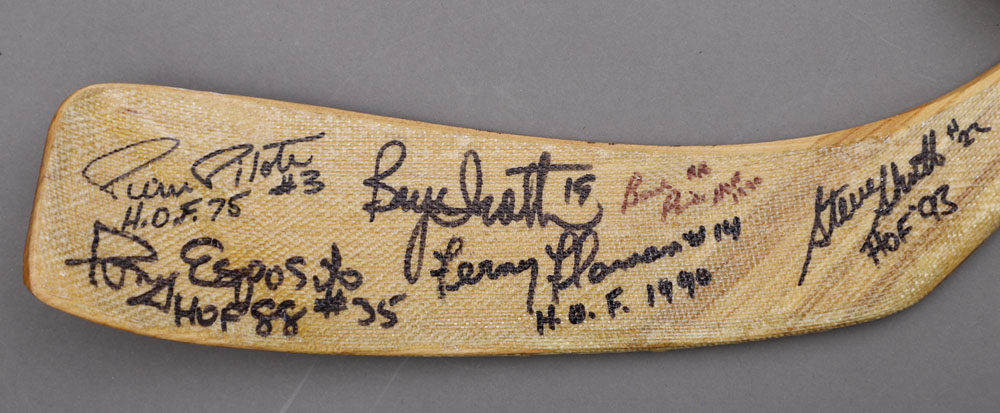 Pierre Pilote #3
H.O.F. 75
Tony Esposito
HOF 88 #35
Bryan Trottier 19
Ferny Flaman #14
H.O.F. 1990
Steve Shutt #22
HOF '93